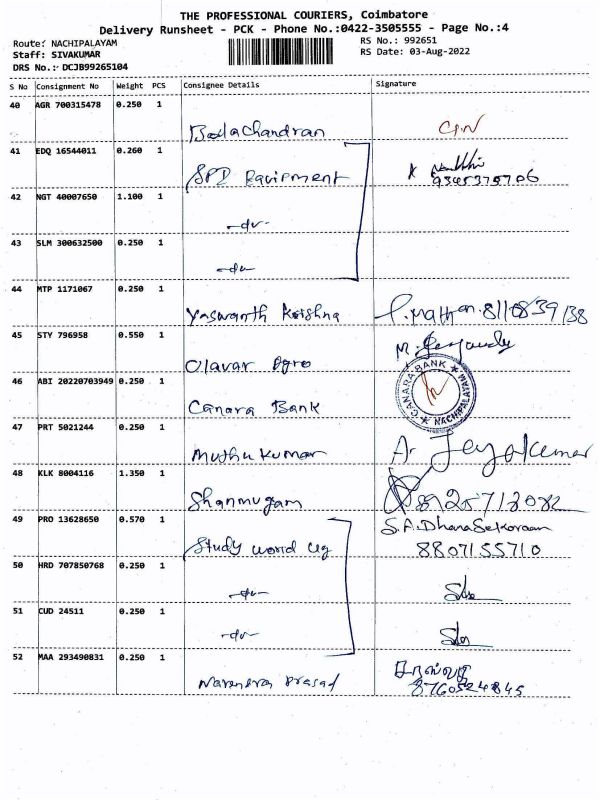 THE PROFESSIONAL COURIERS, Coimbatore
Delivery Runsheet - PCK - Phone No.:0422-3505555 - Page No.:4
Route: NACHIPALAYAM RS No.: 992651
Staff: SIVAKUMAR RS Date: 03-Aug-2022
DRS No.: DCJB99265104
S No Consignment No Weight PCS Consignee Details Signature
40 AGR 700315478 0.250 1
Balachandran
41 EDQ 16544011 0.260 1
SPD Equipment 9345375706
42 NGT 40007650 1.100 1
-do-
43 SLM 300632500 0.250 1
-do-
44 MTP 1171067 0.250 1
Yaswanth Krishna P. Mathan. 8110839138
45 STY 796958 0.550 1
Olavar Agro
46 ABI 20220703949 0.250 1
CANARA BANK
NACHIPALAYAM
Canara Bank
47 PRT 5021244 0.250 1
Muthukumar A. Jeyakumar
48 KLK 8004116 1.350 1
Shanmugam 8925713082
49 PRO 13628650 0.570 1
S.A.DhanaSekaran
Study world clg 8807155710
50 HRD 707850768 0.250 1
-do-
51 CUD 24511 0.250 1
-do-
52 MAA 293490831 0.250 1
Narendra Prasad 8760524845